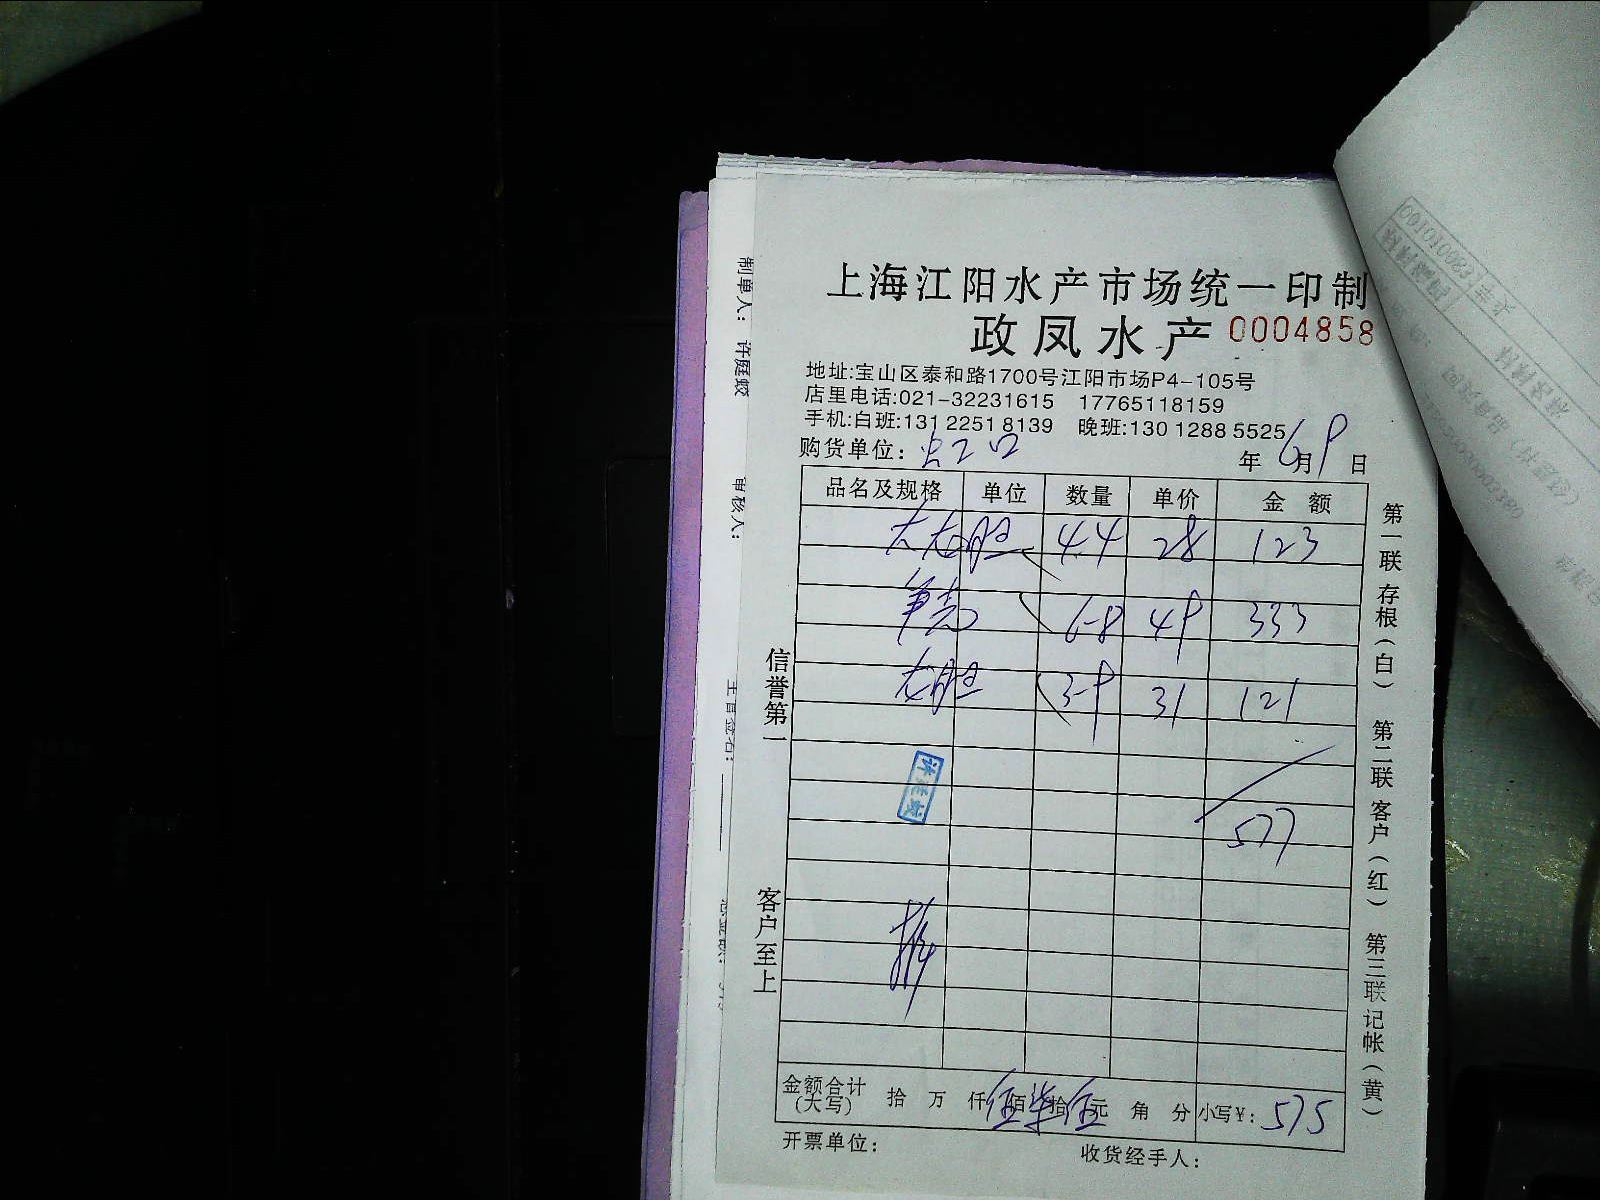 上海江阳水产市场统一印制
政凤水产 0004858
地址:宝山区泰和路1700号江阳市场P4-105号
店里电话:021-32231615 17765118159
手机:白班:131 2251 8139 晚班:130 1288 5525
购货单位: 虹口 年 6月9日
品名及规格 单位 数量 单价 金额
大龙胆 4.4 28 123
笋壳 6-8 49 333
龙胆 3-9 31 121
577
金额合计(大写) 拾 万 仟 伍佰 柒拾 伍元 角 分 小写¥: 575
开票单位: 收货经手人:
信誉第一
客户至上
第一联 存根(白) 第二联 客户(红) 第三联 记帐(黄)
制单人: 许庭蛟
审核人: